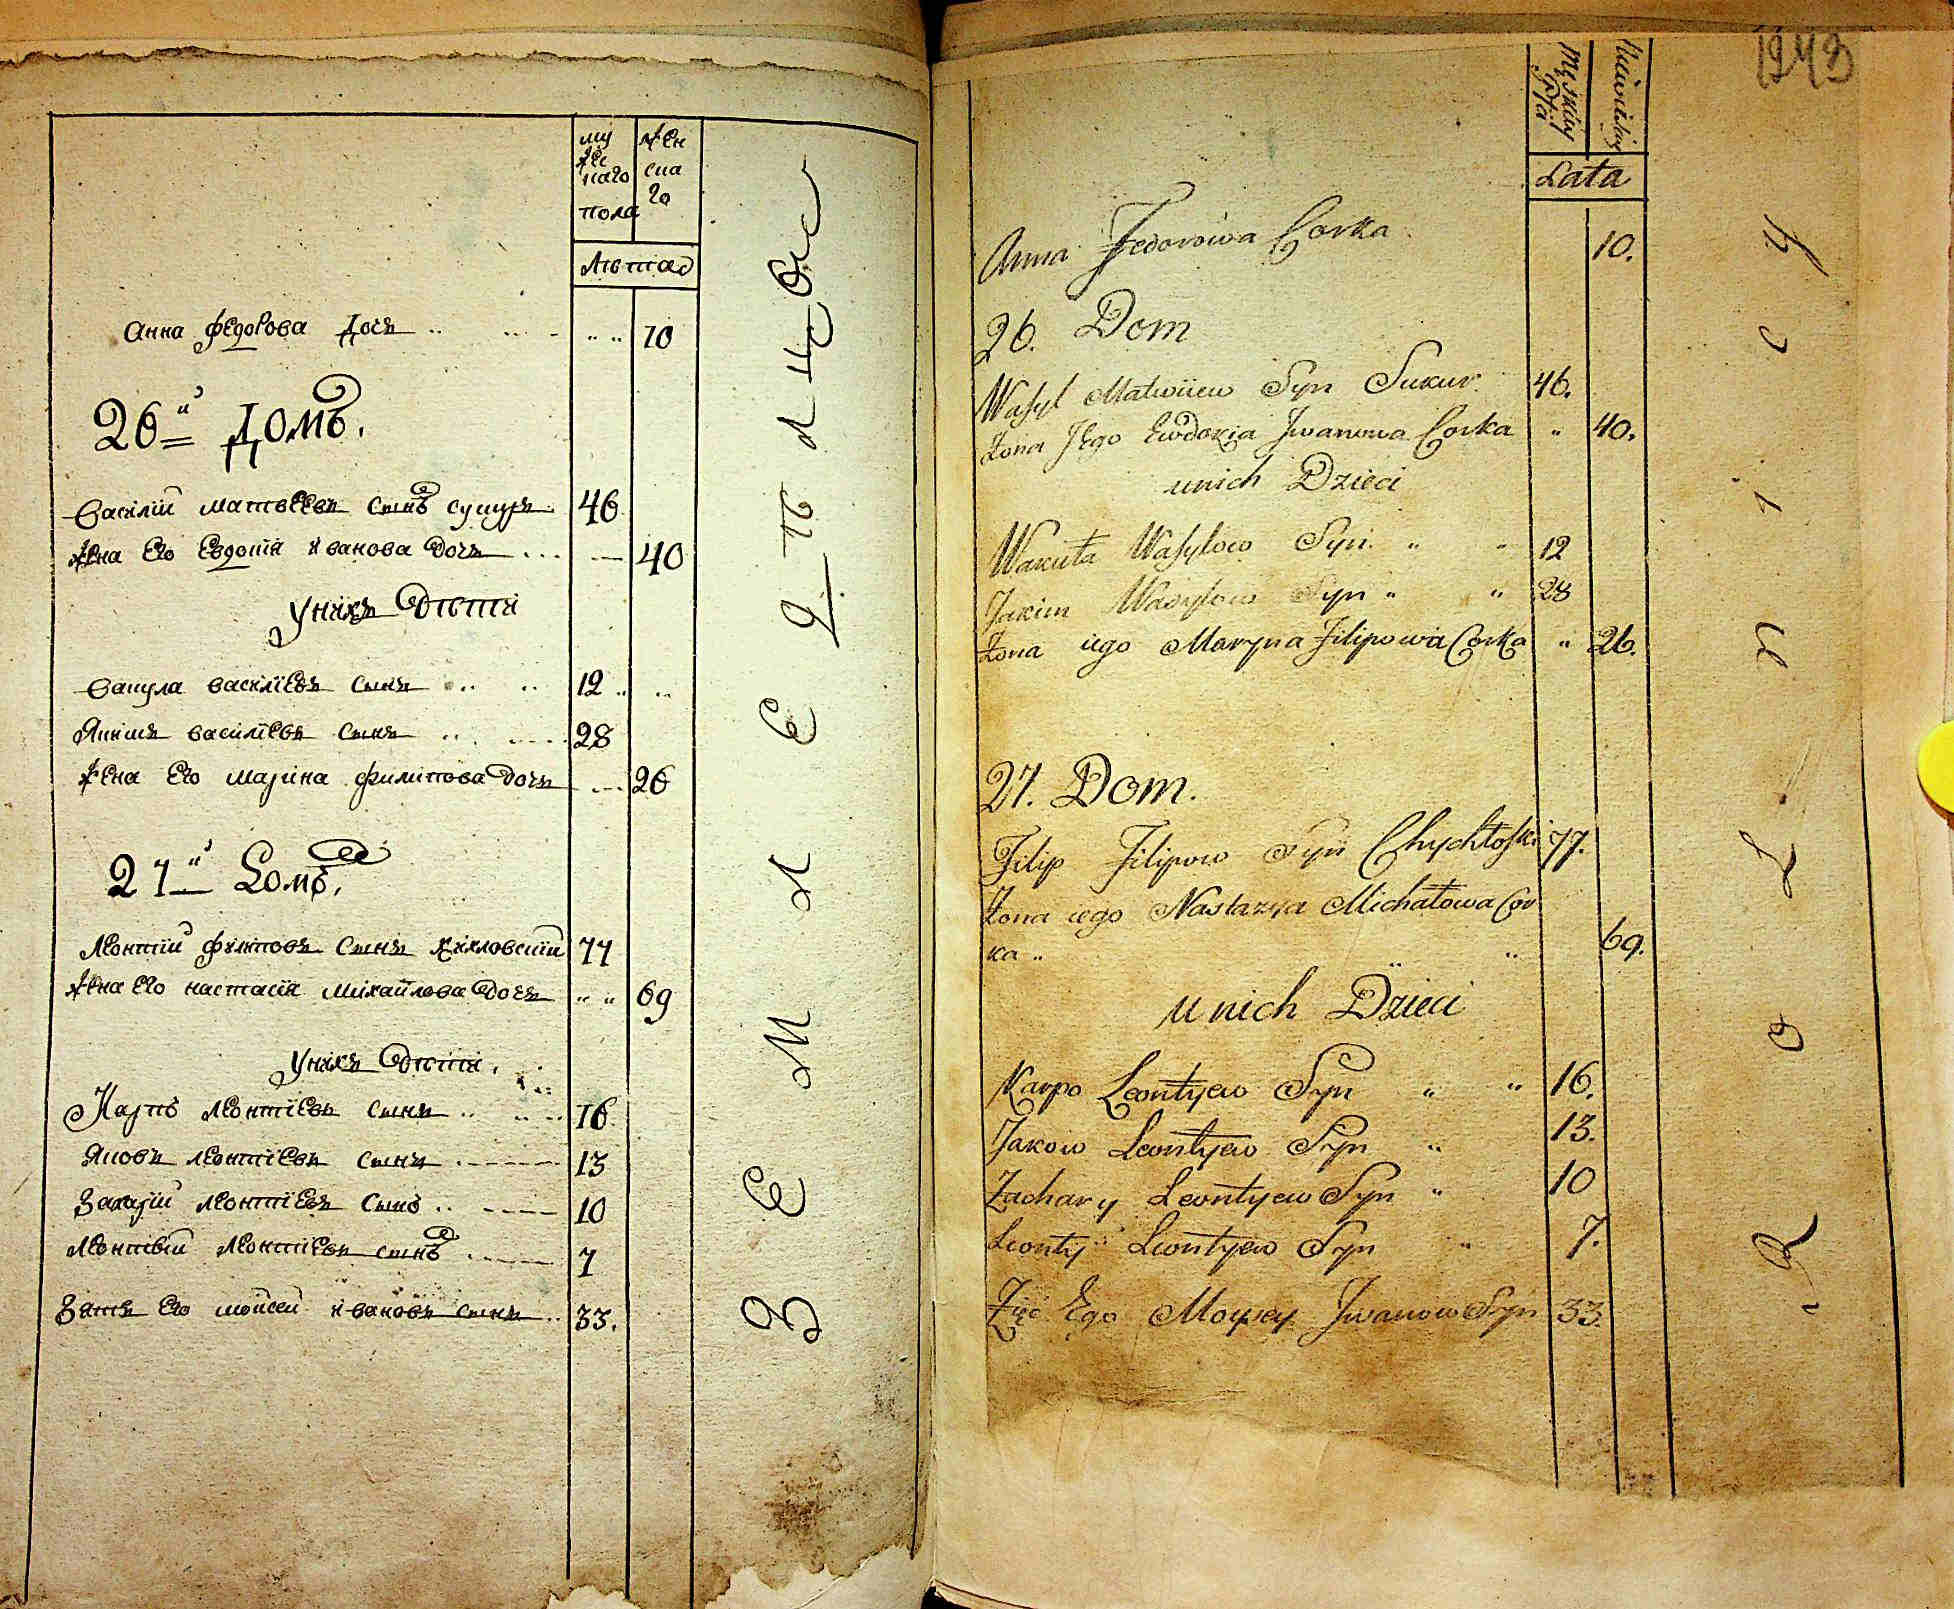 мужескаго пола
женскаго
лѣта
Анна федорова дочь 10
26й домъ.
василий матвѣевъ сынъ сукуръ 46
жена его евдокия иванова дочь 40
у нихъ дѣти
вакула василїевъ сынъ 12
якимъ василїевъ сынъ 28
жена его марина филипова дочь 26
27й домъ.
леонтий филиповъ сынъ хихловский 77
жена его настасия михайлова дочь 69
у нихъ дѣти.
Карпъ леонтїевъ сынъ 16
яковъ леонтїевъ сынъ 13
захарий леонтїевъ сынъ 10
леонтий леонтїевъ сынъ 7
зять его моисей ивановъ сынъ 33.
З Е М Л Е
1243
Męskiey płci
Lata
Anna Fedorowa Corka 10.
26. Dom
Wasyl Matwiiew Syn Sukur 46.
Żona Jego Ewdokia Jwanowa Corka " 40.
u nich Dzieci
Wakuła Wasylow Syn " " 12
Jakim Wasylow Syn " " 28
Żona iego Maryna Filipowa Corka " 26.
27. Dom.
Filip Filipow Syn Chychłoski 77.
Żona iego Nastazya Michałowa Cor
ka " " " 69.
u nich Dzieci
Karpo Leontyew Syn " " 16.
Jakow Leontyew Syn " 13.
Zachary Leontyew Syn " 10
Leonty Leontyew Syn " 7.
Zięć Ego Moysey Jwanow Syn 33.